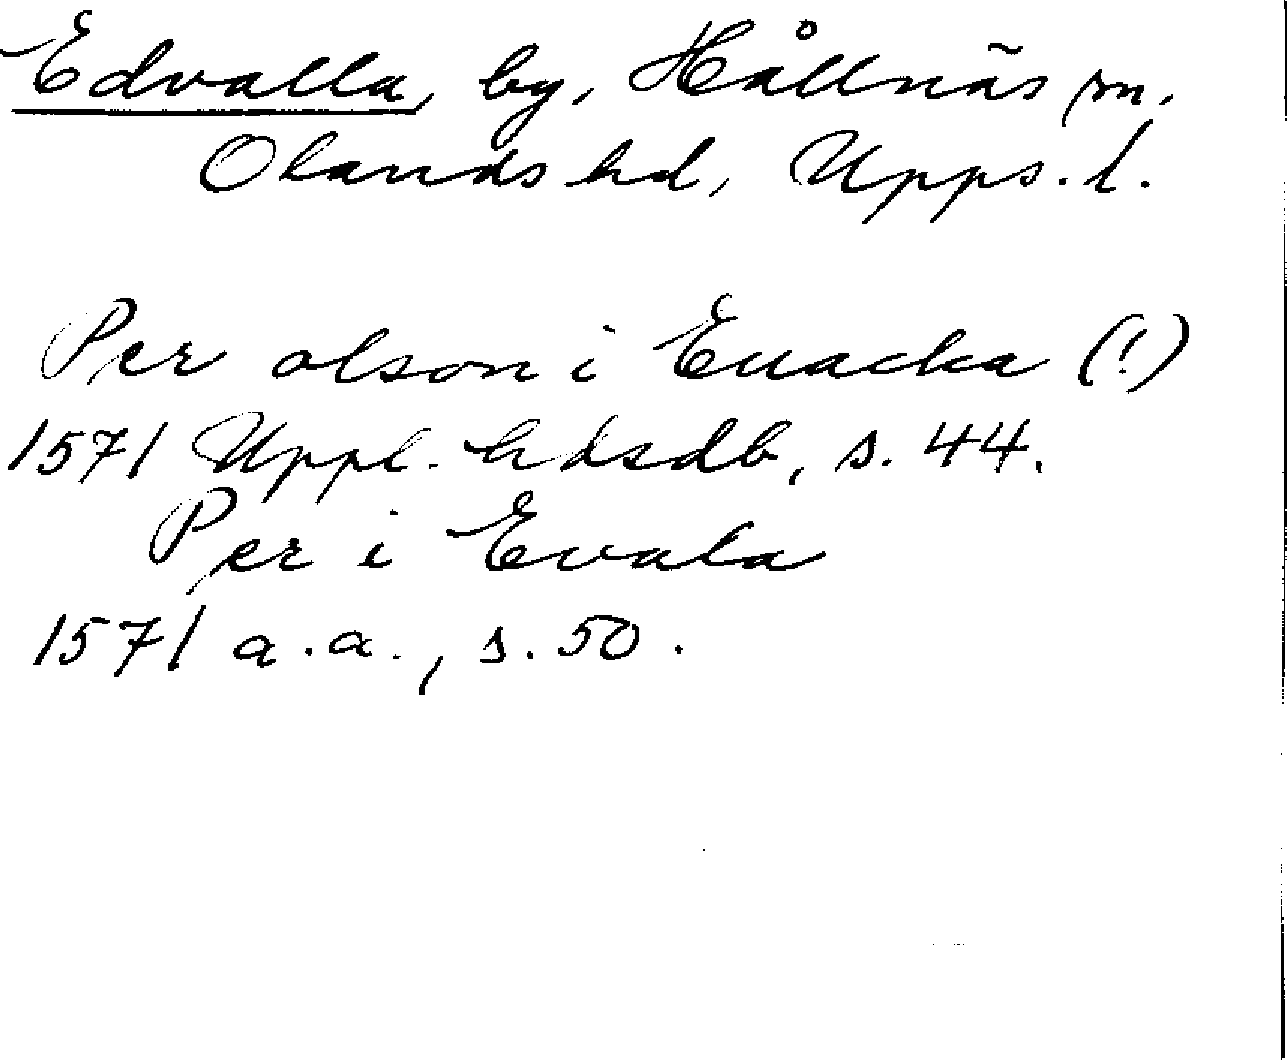 Edvalla, by, Hållnäs sn.
Olands hd, Upps. l.
Per olson i Euacka (!)
1571 Uppl. hdsdb, s. 44.
Per i Evala
1571 a.a., s. 50.